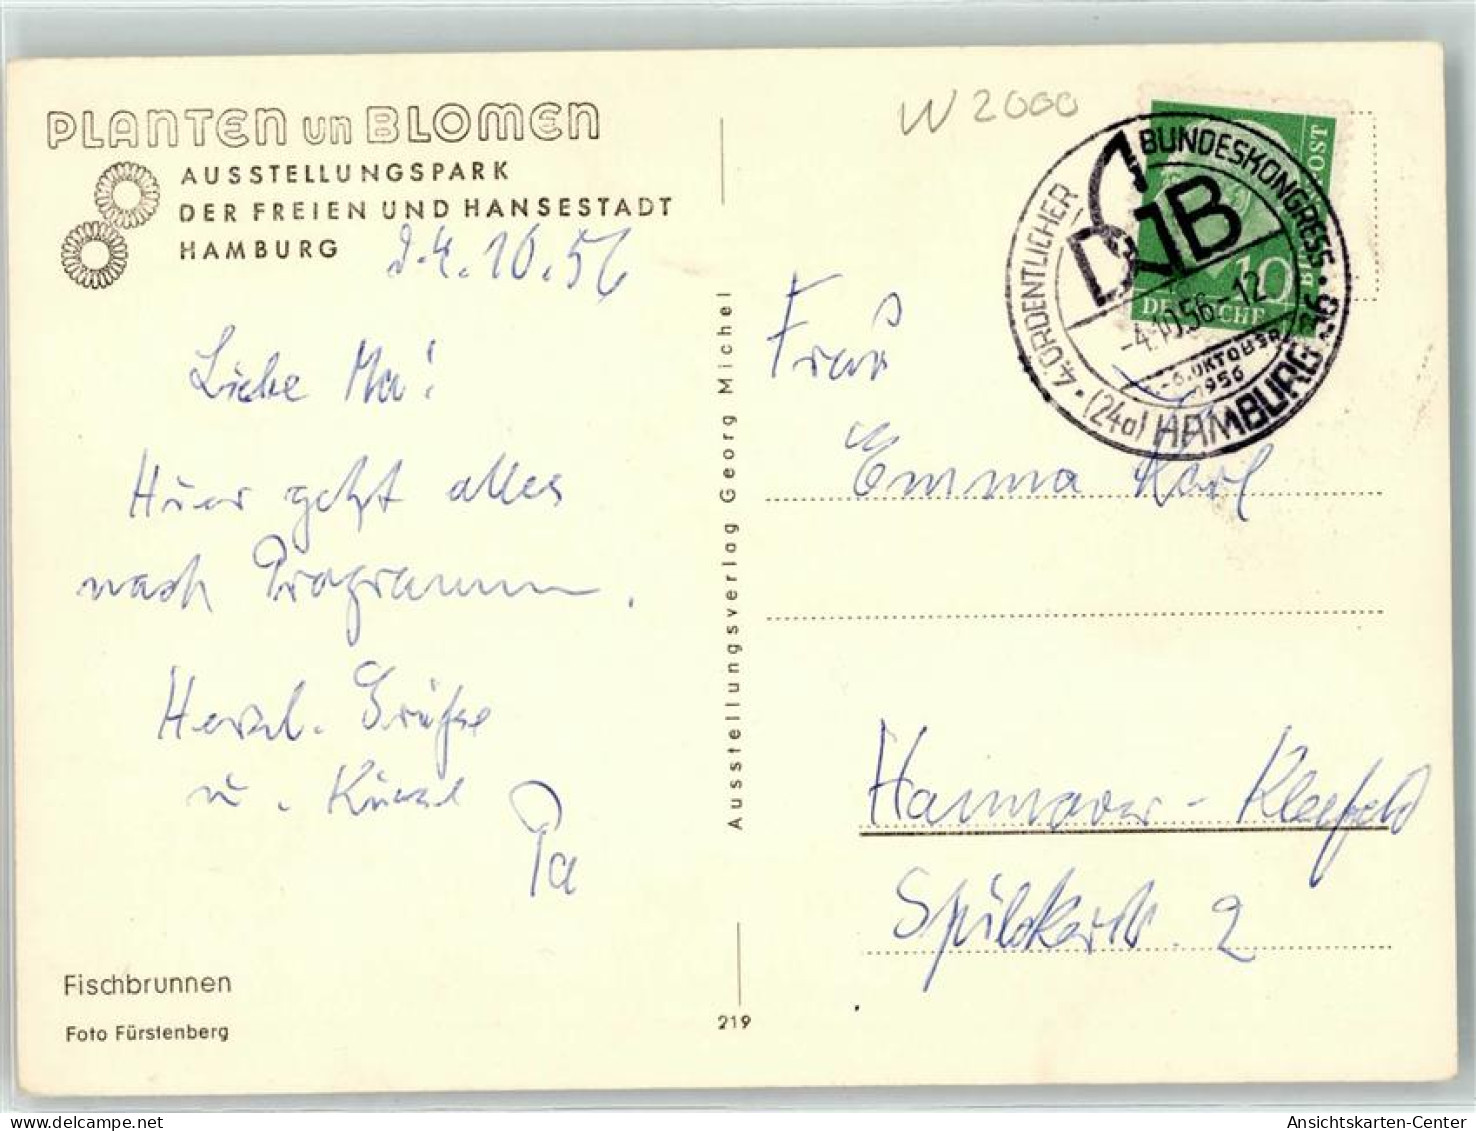 PLANTEN un BLOMEN
AUSSTELLUNGSPARK
DER FREIEN UND HANSESTADT
HAMBURG
d. 4. 10. 56
Liebe Ma!
Hier geht alles
nach Programm.
Herzl. Grüße
u.
Pa
Fischbrunnen
Foto Fürstenberg
Ausstellungsverlag Georg Michel
219
W 2000
4. ORDENTLICHER BUNDESKONGRESS
DGB
-4.10.56-12
-6. OKTOBER
1956
(24a) HAMBURG 36
POST
10
DEUTSCHE
Frau
Emma Karl
Hannover - Kleefeld
2
Ansichtskarten-Center.net
Ansichtskarten-Center